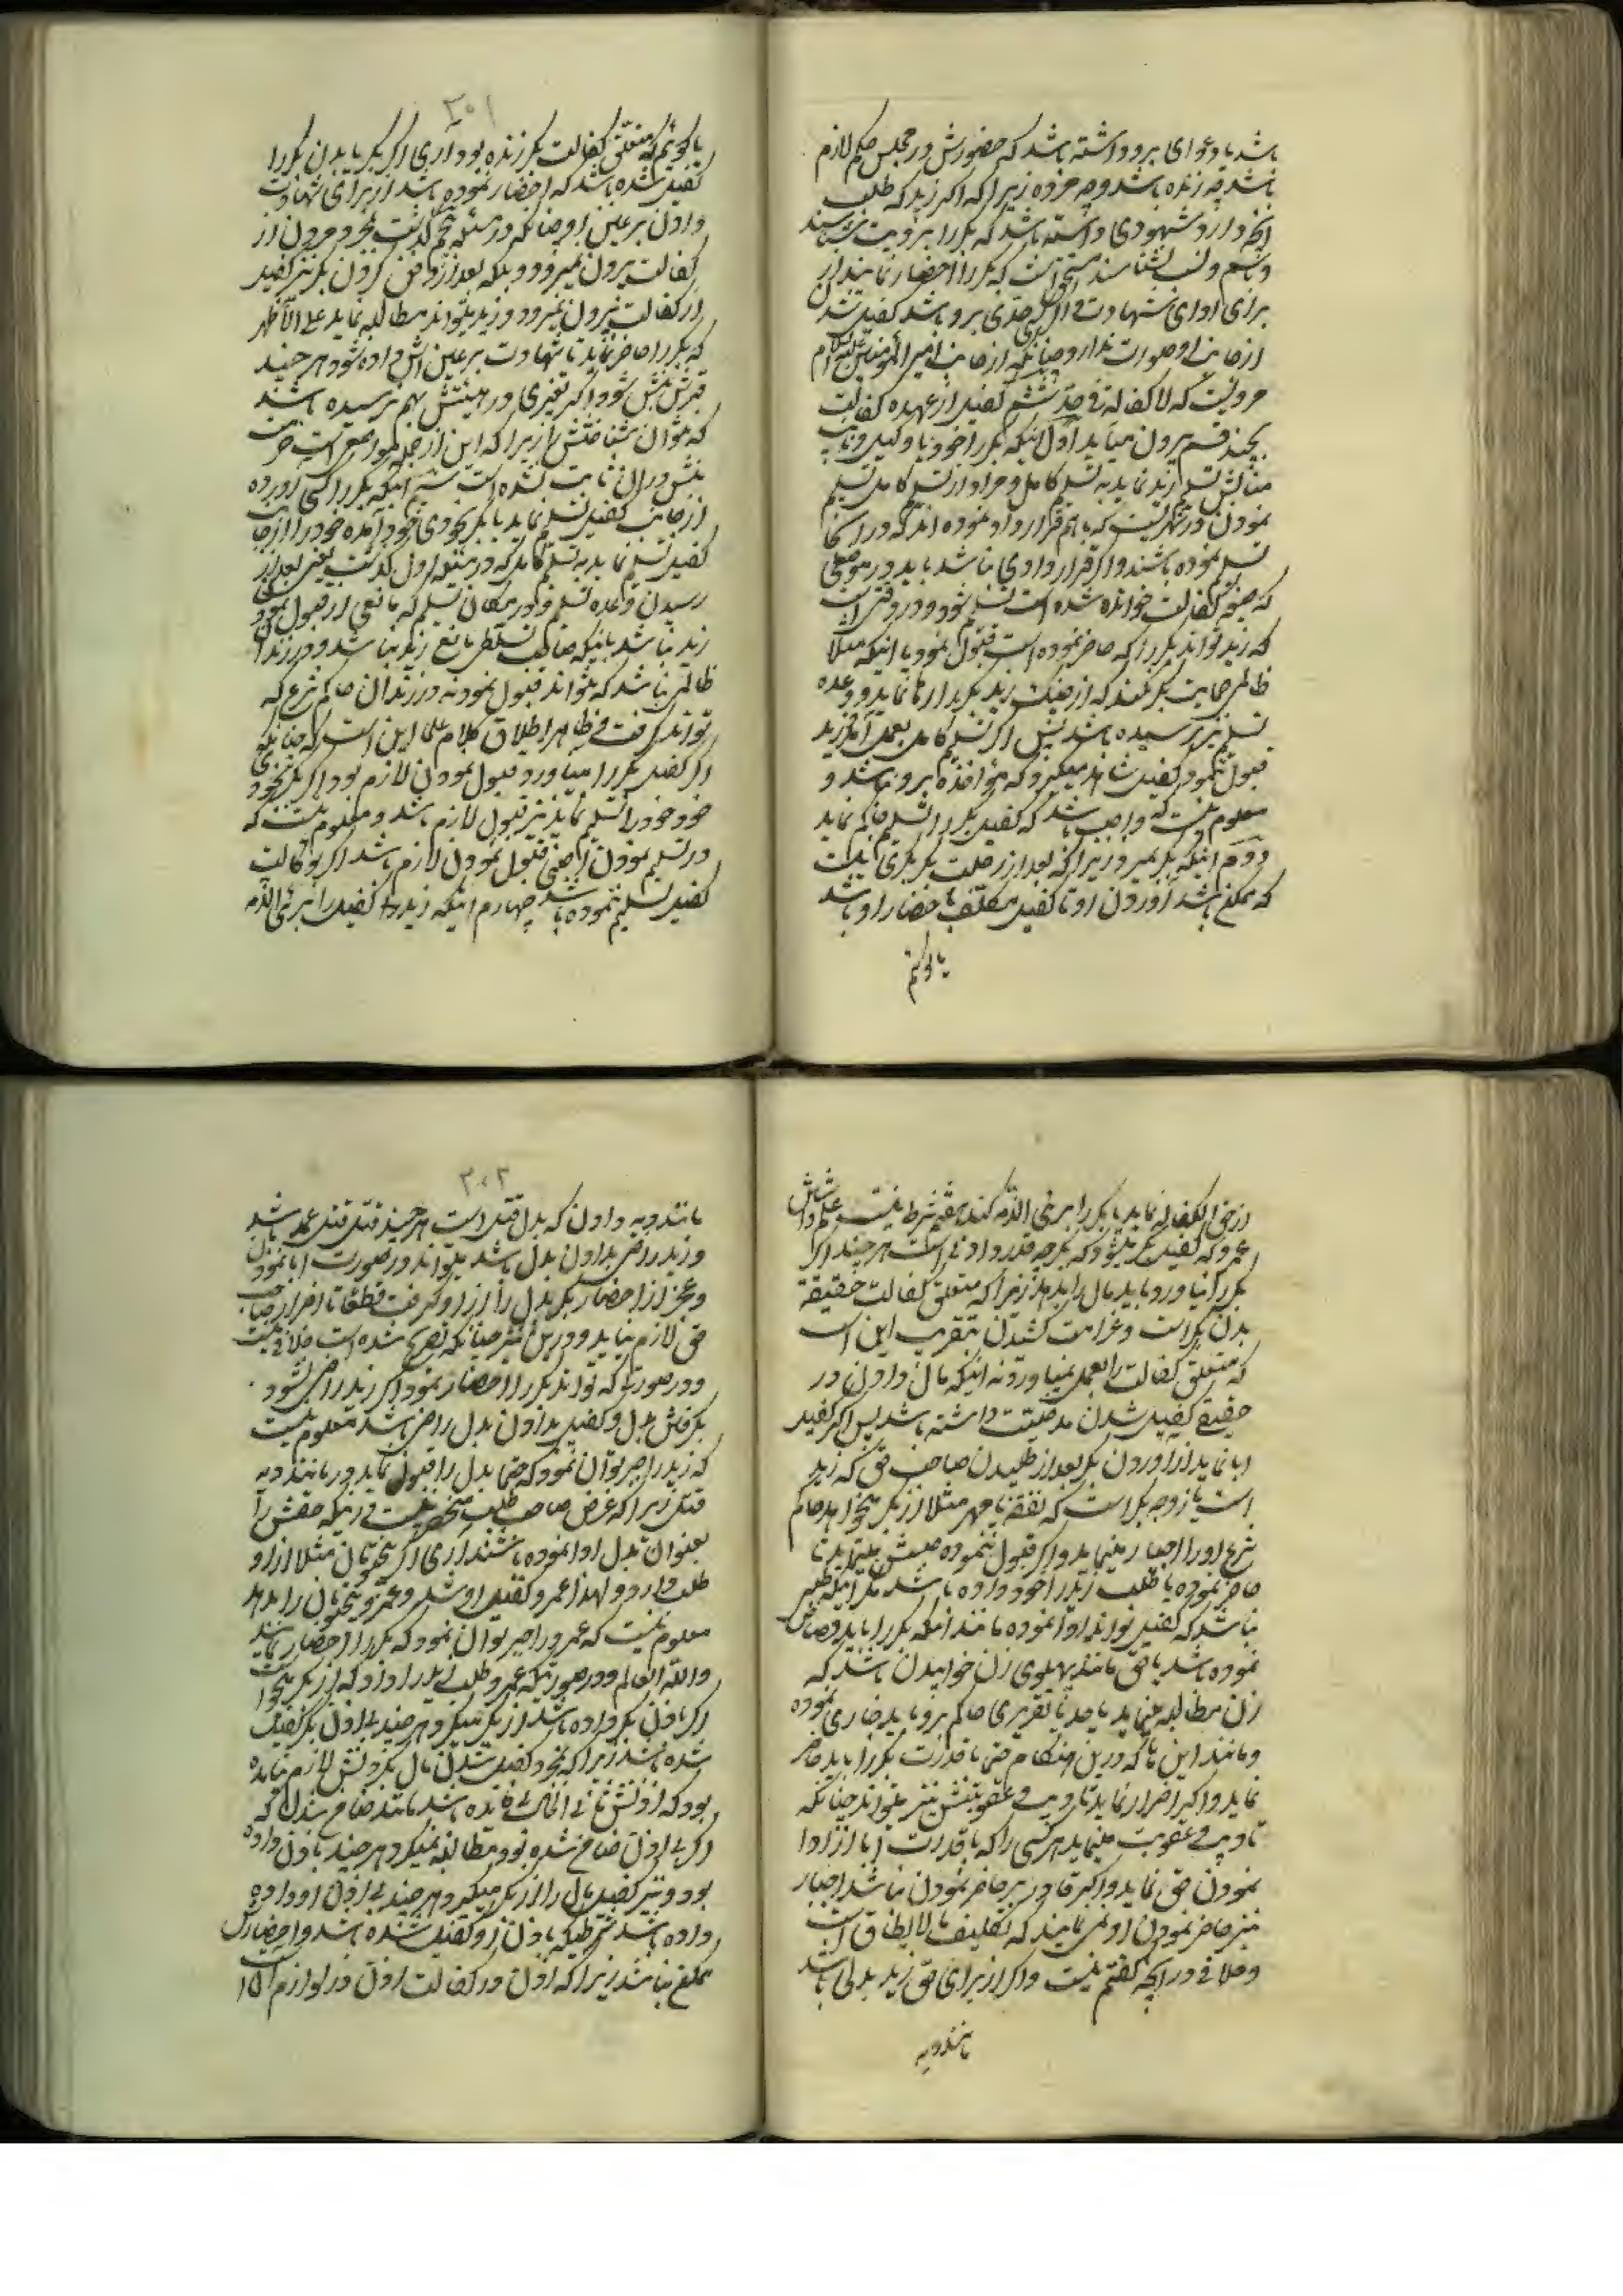 باشد یا دعوای برو داشته باشد که حضورش در مجلس حکم لازم
باشد چه زنده باشد و چه مرده زیرا که اگر زید که طلب
شهودی داشته باشد که بکر را برویت بشناسند
و باسم و نسب نشناسند که بکر را احضار نمایند از
برای ادای شهادت و اگر حدی برو باشد کفیل شدن
از جانب او صورت ندارد چنانکه از جانب امیر المؤمنین علیه السلام
مرویست که لا کفالة فی حد ششم کفیل از عهده کفالت
بچند قسم بیرون میآید اول اینکه بکر را خود یا وکیل و نایب
مثالش تسلیم زید نماید به تسلیم کامل و مراد از تسلیم کامل تسلیم
نمودن در شهریست که باهم قرارداد نموده اند که در انجا
تسلیم نموده باشند و اگر قراردادی نباشد باید در موضعی
که صیغه کفالت خوانده شده است تسلیم شود و در وقتی است
که زید تواند بکر را که حاضر نموده است قبول نمود یا اینکه مثلا
ظالمی حمایت بکر نکند که از چنک زید بکر را رها نماید و وعده
تسلیم نیز رسیده باشد پس اگر تسلیم کامل بعمل آمد و زید
قبول ننمود کفیل شاهد میگیرد که مؤاخذه برو نباشد و
معلوم نیست که واجب باشد که کفیل بکر را تسلیم حاکم نماید
دوم اینکه بکر بمیرد زیرا که بعد از رحلت بکر بکری نیست
که ممکن باشد آوردن او تا کفیل مکلف باحضار او باشد
یا گوئیم
۳۰۱
یا گوئیم که متعلق کفالت بکر زنده بود آری اگر بکر یا بدن بکر را
کفیل شده باشد که احضار نموده باشد از برای شهادت
دادن بر عین او چنانکه در مسئله پنجم گذشت بمجرد مردن از
کفالت بیرون نمیرود و بلکه بعد از دفن کردن بکر نیز کفیل
از کفالت بیرون نمیرود و زید میتواند مطالبه نماید علی الأظهر
که بکر را حاضر نماید تا شهادت بر عین اش داده شود هر چند
قبرش نبش شود اگر تغییری در هیئتش بهم نرسیده باشد
که بتوان شناختش زیرا که این از جمله مواضعی است که حرمت
نبش در ان ثابت نشده است سیم اینکه بکر را کسی آورده
از جانب کفیل تسلیم نماید یا بکر بخودی خود آمده خود را از جانب
کفیل تسلیم نماید به تسلیم کاملی که در مسئله اول گذشت یعنی بعد از
رسیدن وعده تسلیم و در مکان تسلیم که مانعی از قبول نمودن
زید نباشد باینکه صاحب تسلطی مانع زید نباشد و در زندان
ظالمی نباشد که نتواند قبول نمود نه در زندان حاکم شرع که
تواند گرفت و ظاهر اطلاق کلام علما این است که چنانکه
اگر کفیل بکر را میآورد قبول نمودن لازم بود اگر بکر بخودی
خود خود را تسلیم نماید نیز قبول لازم باشد و معلوم نیست که
در تسلیم نمودن اجنبی قبول نمودن لازم باشد اگر بوکالت
کفیل تسلیم ننموده باشد چهارم اینکه زید کفیل را بریٔ الذمه
از حق الکفاله نماید یا بکر را بریٔ الذمه کند هفتم شرط نیست علم داشتن
عمرو که کفیل بکر میشود که بکر چه قدر دادنی است هر چند اگر
بکر را نیاورد باید مال را بدهد زیرا که متعلق کفالت حقیقة
بدن بکر است و غرامت کشیدن بتقریب این است
که متعلق کفالت را بعمل نمیاورد نه اینکه مال دادن در
حقیقت کفیل شدن مدخلیت داشته باشد پس اگر کفیل
ابا نماید از آوردن بکر بعد از طلبیدن صاحب حق که زید
است یا زوجه بکر است که نفقه یا مهر مثلا از بکر میخواهد حاکم
شرع او را اجبار مینماید و اگر قبول ننموده حبسش مینماید تا
حاضر نموده یا طلب زید را خود داده باشد مگر اینکه طلبی
نباشد که کفیل تواند ادا نموده مانند انکه بکر را باید قصاص
نموده باشد یا حق مانند پهلوی زن خوابیدن باشد که
زن مطالبه مینماید یا حد یا تعزیری حاکم برو باید جاری نموده
و مانند این ها که درین هنگام حتما با قدرت بکر را باید حاضر
نماید و اگر اصرار نماید تادیب و عقوبتش نیز میتواند چنانکه
تادیب و عقوبت مینماید هر کسی را که با قدرت ابا از ادا
نمودن حق نماید و اگر قادر بر حاضر نمودن نباشد اجبار
نیز حاضر نمودن او نمی نمایند که تکلیف ما لا یطاق است
و خلافی در آنچه گفتم نیست و اگر از برای حق زید بدلی باشد
مانند دیه
۳۰۲
مانند دیه دادن که بدل قتل است هر چند قتل قتل عمد باشد
و زید راضی بدادن بدل باشد میتواند در صورت ابا نمودن
و عجز از احضار بکر بدل را از او گرفت قطعا تا اضرار صاحب
حق لازم نیاید و درین نیز چنانکه تصریح شده است خلافی نیست
و در صورتی که تواند بکر را احضار نمود اگر زید راضی نشود
بگرفتن بدل و کفیل بدادن بدل راضی باشد معلوم نیست
که زید را جبر توان نمود که حتما بدل را قبول نماید در مانند دیه
قتل زیرا که غرض صاحب طلب منحصر نیست در اینکه حقش را
بعنوان بدل ادا نموده باشند آری اگر پنج تومان مثلا از او
طلب دارد و لهذا عمرو کفیل او شد و عمرو پنج تومان را بدهد
معلوم نیست که عمرو را جبر توان نمود که بکر را احضار نماید
والله العالم و در صورتیکه عمرو طلب زید را داد که از بکر میخواست
اگر باذن بکر داده باشد از بکر میگیرد هر چند بی اذن بکر کفیل
شده باشد زیرا که بمجرد کفیل شدن مال بکردنش لازم نیامده
بود که اذنش ثانی الحال بی فایده باشد مانند ضامن شدن که
اگر بی اذن ضامن شده بود مطالبه نمیکرد هر چند باذن داده
بود و نیز کفیل مال را از بکر میگیرد هر چند بی اذن او داده
داده باشد بشرطیکه باذن او کفیل شده باشد و احضارش
ممکن نباشد زیرا که اذن در کفالت اذن در لوازم آن است